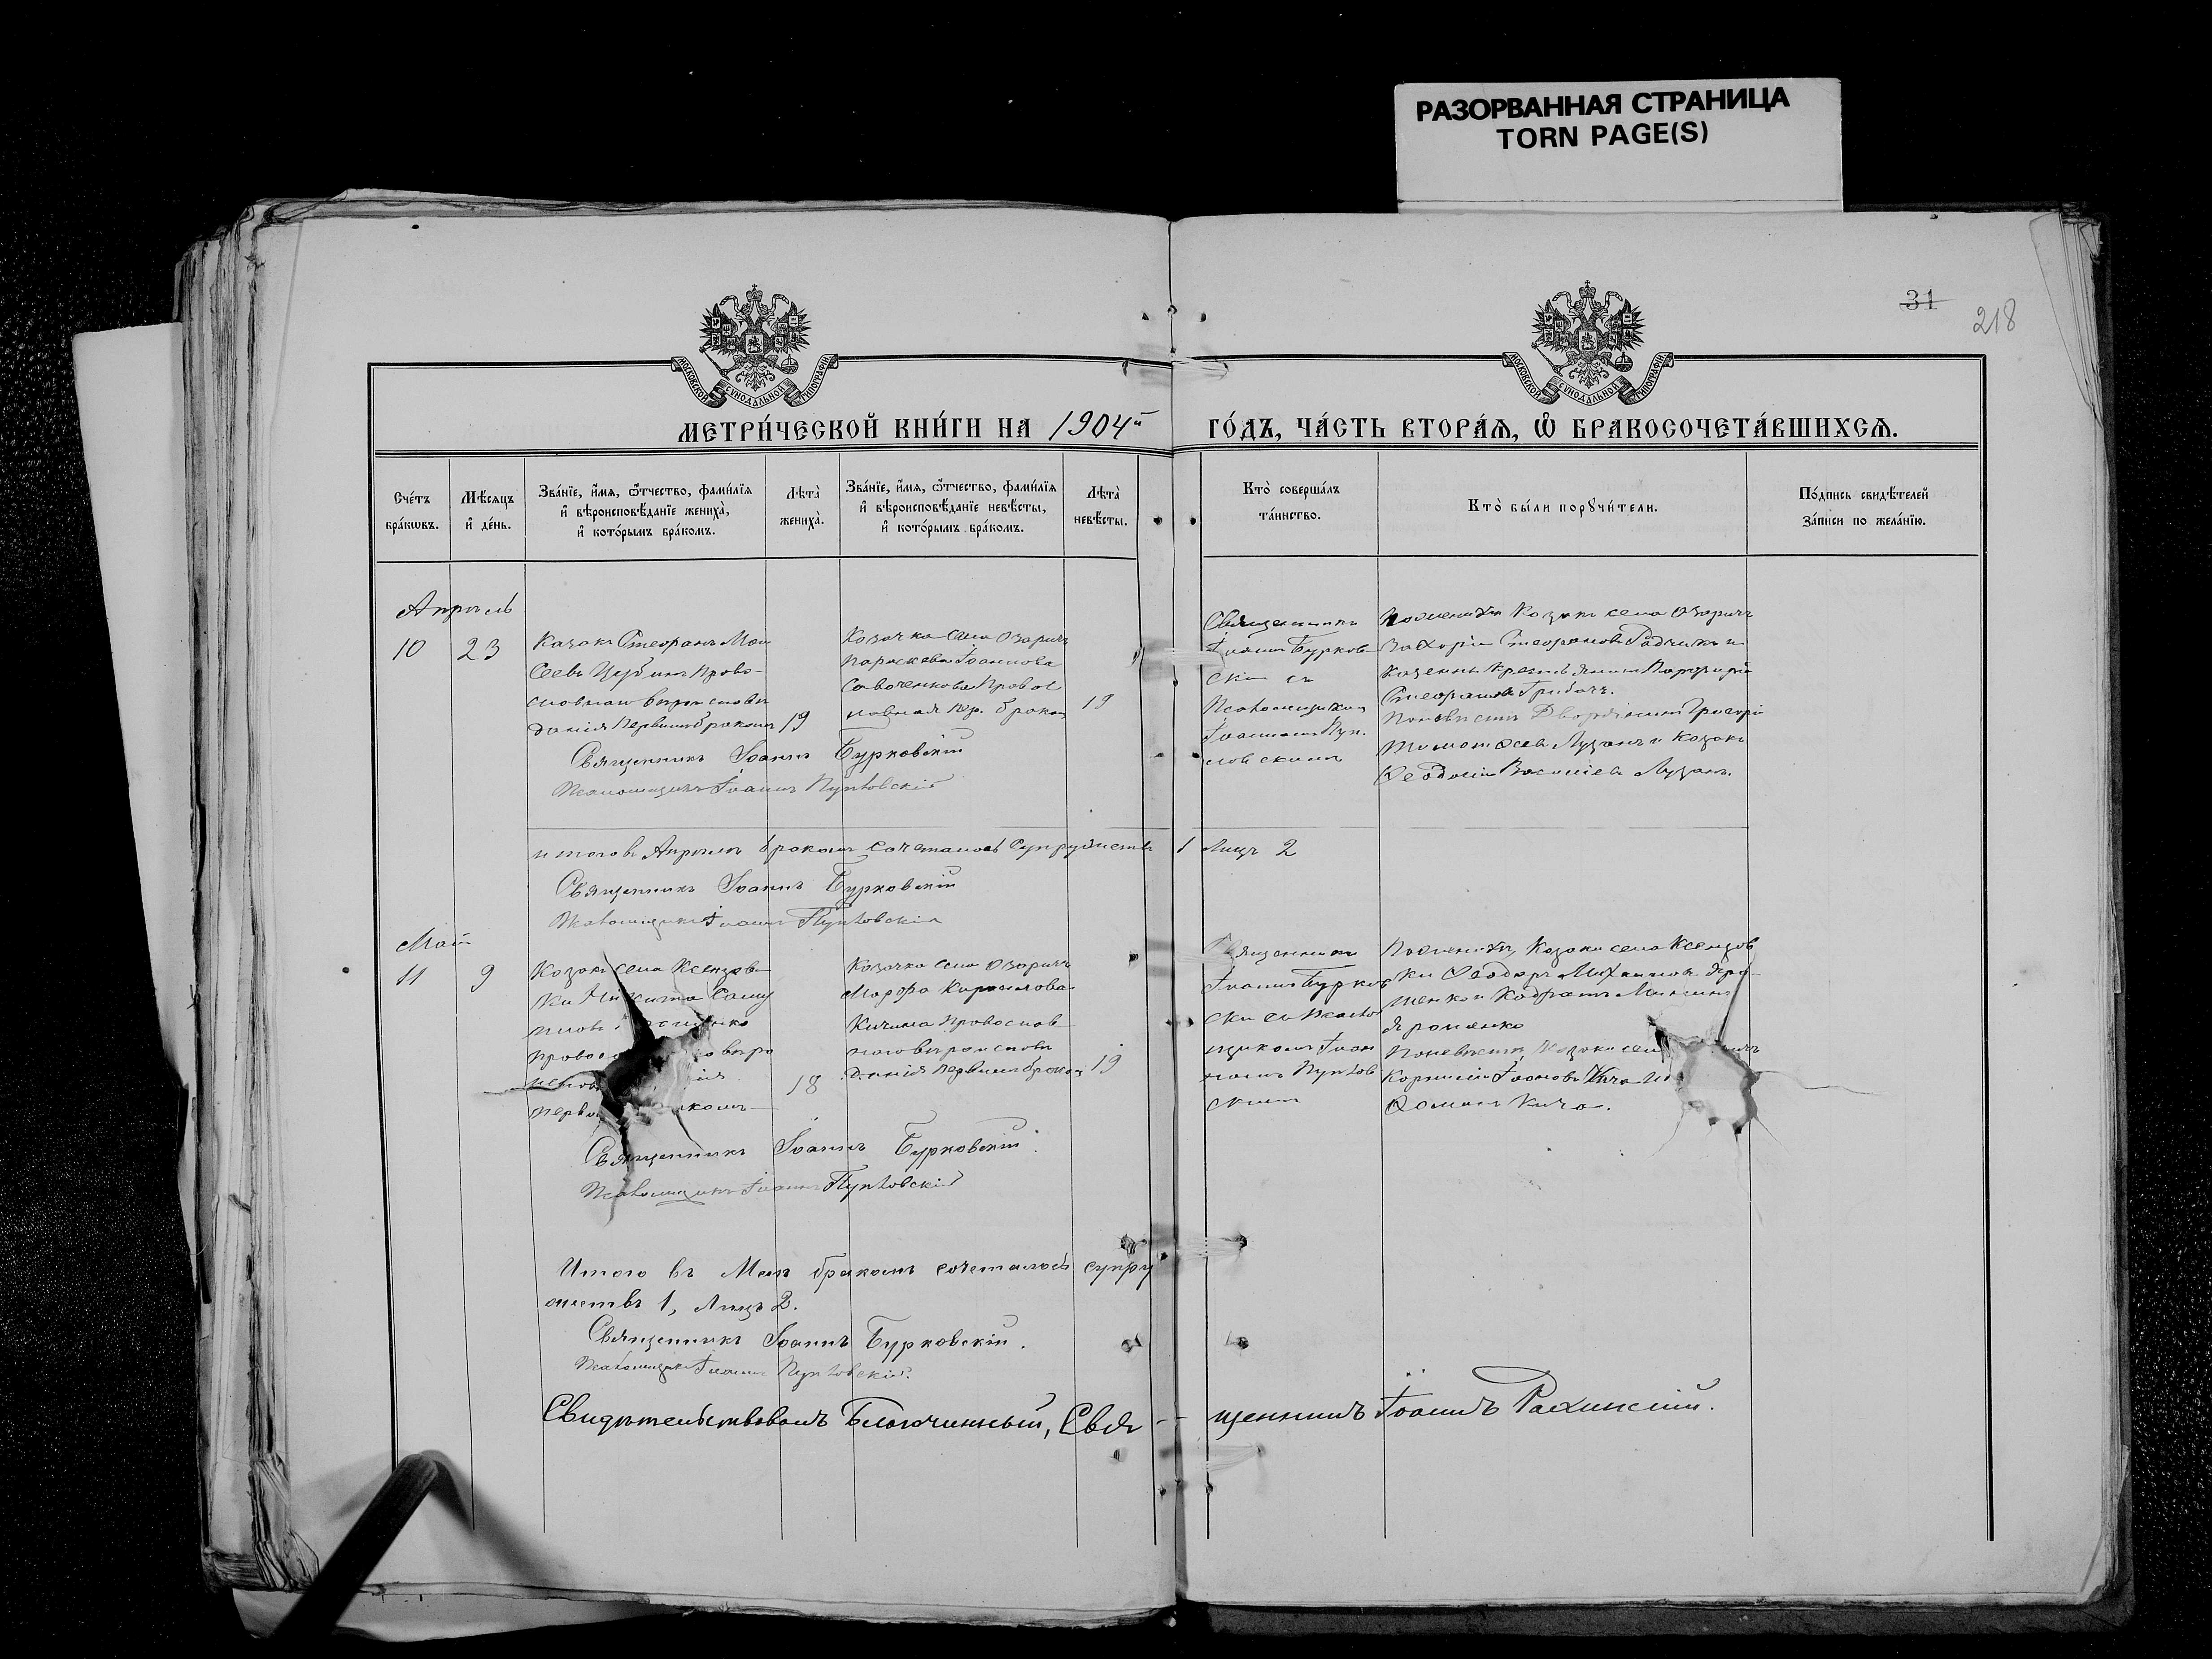 РАЗОРВАННАЯ СТРАНИЦА
TORN PAGE(S)
31
218
МОСКОВСКОЙ СУНОДАЛЬНОЙ ТИПОГРАФІИ
МОСКОВСКОЙ СУНОДАЛЬНОЙ ТИПОГРАФІИ
МЕТРИ́ЧЕСКОЙ КНИ́ГИ НА 1904й ГО́ДЪ, ЧА́СТЬ ВТОРА́Ѧ, Ѽ БРАКОСОЧЕТА́ВШИХСѦ.
Сче́тъ
бра́кѡвъ.
Мѣ́сѧцъ
и҆ де́нь.
Зва́нїе, и҆́мѧ, ѻ҆́тчество, фами́лїѧ
и҆ вѣроисповѣ́данїе жениха̀,
и҆ кото́рымъ бра́комъ.
Лѣта̀
жениха̀.
Зва́нїе, и҆́мѧ, ѻ҆́тчество, фами́лїѧ
и҆ вѣроисповѣ́данїе невѣ́сты,
и҆ кото́рымъ бра́комъ.
Лѣта̀
невѣ́сты.
Кто̀ соверша́лъ
та́инство.
Кто̀ бы́ли порꙋчи́тели.
По́дпись свидѣ́телей
за́писи по жела́нїю.
Апрель
10
23
Казакъ Стефанъ Мои
сеевъ Право-
славнаго вероиспове
данія первымъ бракомъ
19
Козачка села Озаричъ
Параскева Іоаннова
Савоченкова Правос
лавная пер. бракомъ
19
Священникъ
Іоаннъ Бурков-
скій съ
Псаломщикомъ
Іоанномъ Пуп
ловскимъ
Поженихѣ Козакъ села Озаричъ
Захарій Стефановъ Радчикъ и
казенный крестьянинъ Порфирій
Стефановъ Грибачъ.
Поневѣстѣ Дворянинъ Григорій
Тимофеевъ Лузанъ и Козакъ
Феодосій Васильевъ Лузанъ.
Священникъ Іоаннъ Бурковскій
Псаломщикъ Іоаннъ
итого въ Апрелѣ бракомъ сочеталось Супружествъ 1 Лицъ 2
Священникъ Іоаннъ Бурковскій
Псаломщикъ Іоаннъ
Май
11
9
Козакъ села Ксензов-
ки Никита Саму
иловъ
право веро
испов нія
перв комъ
18
Козачка села Озаричъ
Марфа Кириллова
Кичина Православ
наго вероиспове
данія первымъ бракомъ
19
Священникъ
Іоаннъ Бурков
скій съ Псалом
щикомъ Іоан
номъ
скимъ
Поженихѣ, Козаки села Ксензов
ки Феодоръ Михаиловъ Яро-
менко и Кодратъ
Яроменко
Поневѣстѣ, Козаки сел
Корнилій Іоановъ Кича и
Фоманъ Кича.
Священникъ Іоаннъ Бурковскій.
Псаломщикъ Іоаннъ
Итого въ Маѣ бракомъ сочеталось супру
жествъ 1, Лицъ 2.
Священникъ Іоаннъ Бурковскій.
Псаломщикъ Іоаннъ
Свидѣтельствовалъ Благочинный, Свя-- щенникъ Іоаннъ Рахинскій.